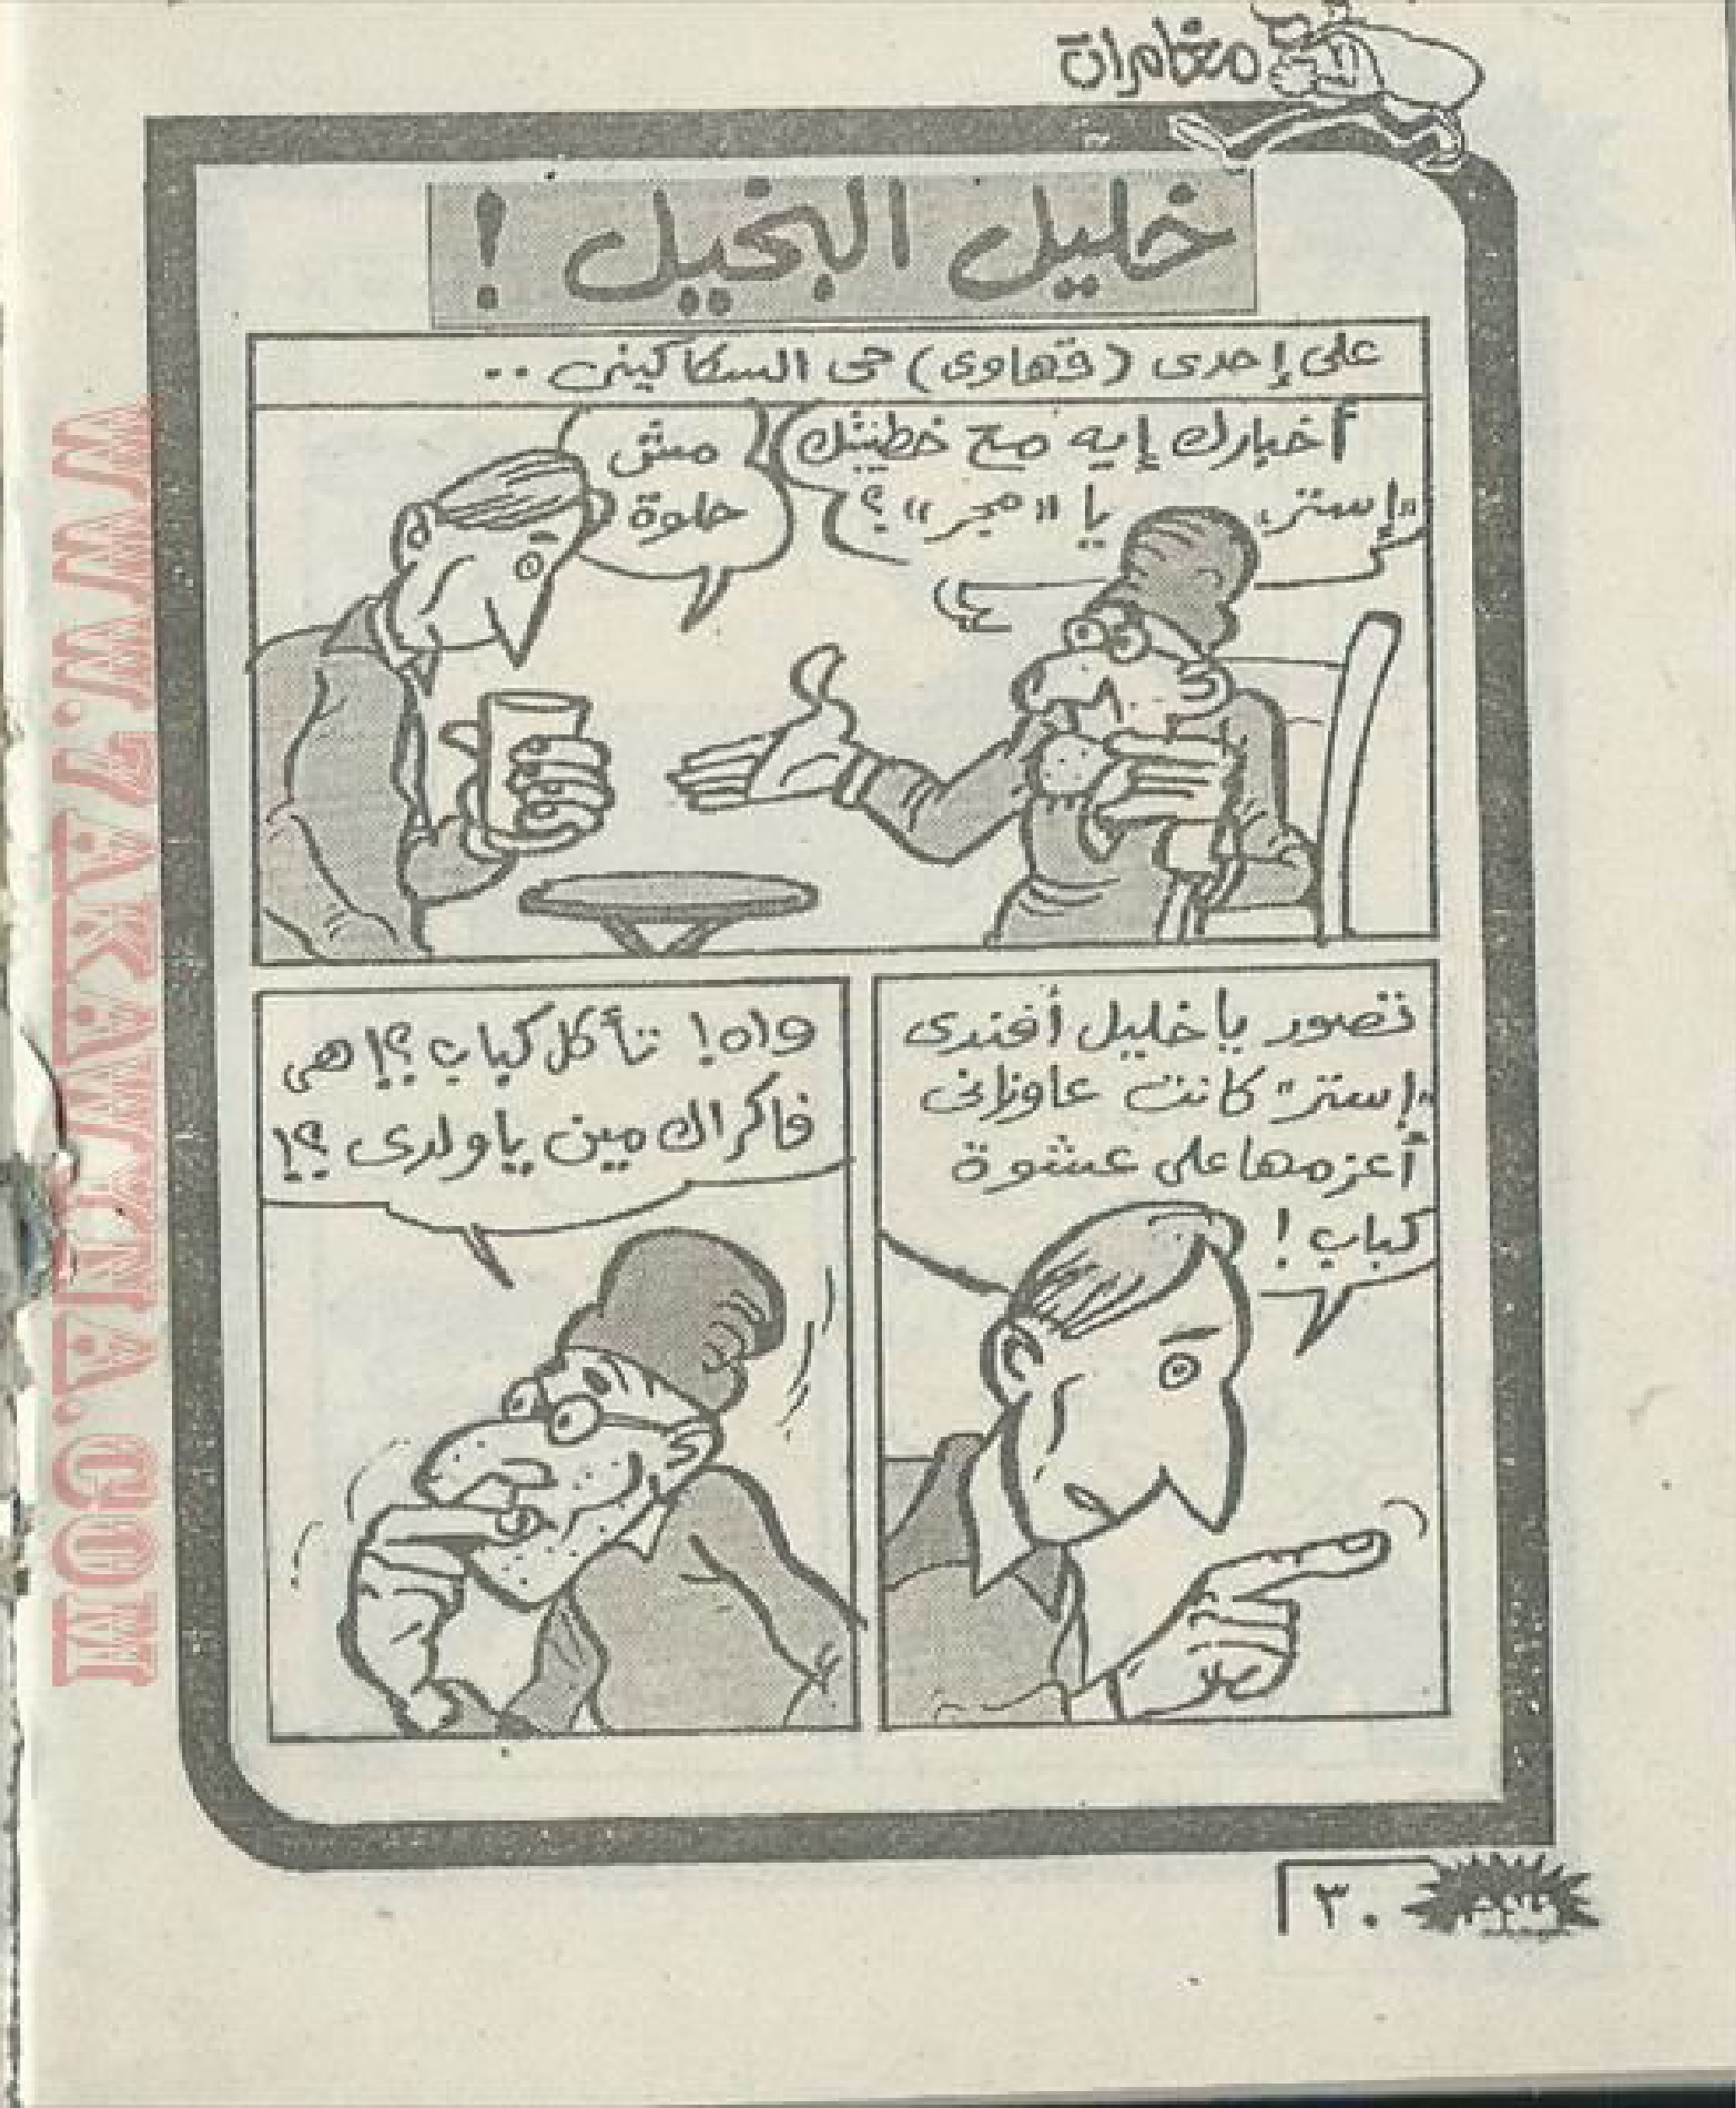 مغامرات
خليل البخيل !
على إحدى (قهاوى) حى السكاكينى ..
أخبارك إيه مع خطيبتك
"إستر" يا "مجر" ؟
مش
حلوة
تصور يا خليل أفندى
"إستر" كانت عاوزانى
أعزمها على عشوة
كباب !
واه! تأكل كباب ؟! هى
فاكراك مين يا ولدى ؟!
٣٠
WWW.7AKAWYNA.COM